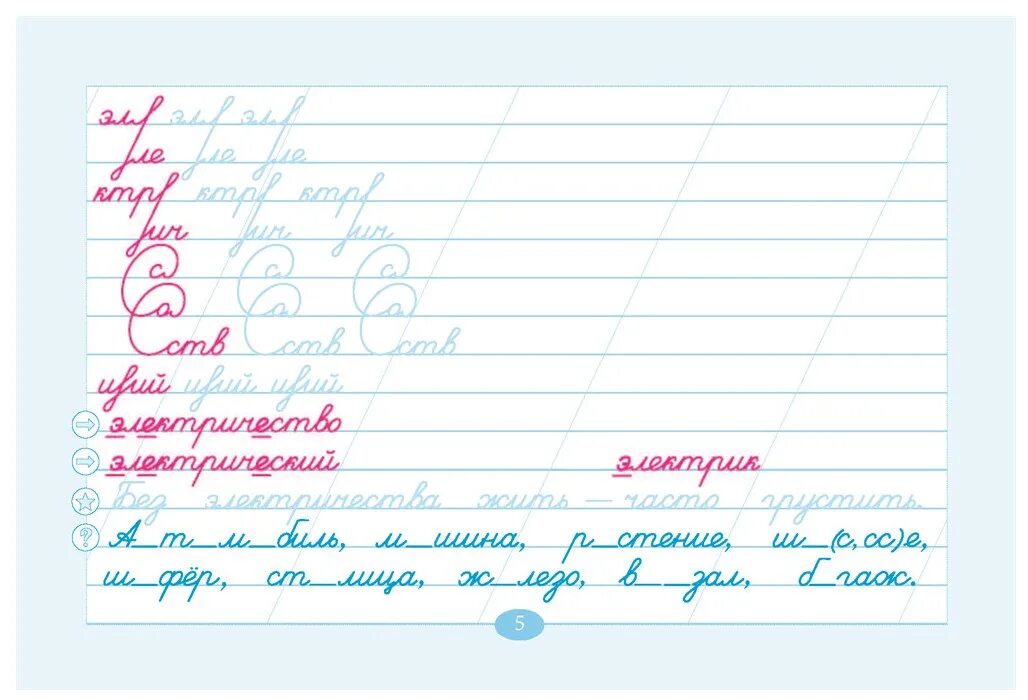 эл эл эл
ле ле ле
ктр ктр ктр
ич ич ич
с с с
а а а
ств ств ств
ий ий ий
электричество
электрический электрик
Без электричества жить — часто грустить.
А_т_м_биль, м_шина, р_стение, ш_(с, сс)е,
ш_фёр, ст_лица, ж_лезо, в_ _зал, б_гаж.
5